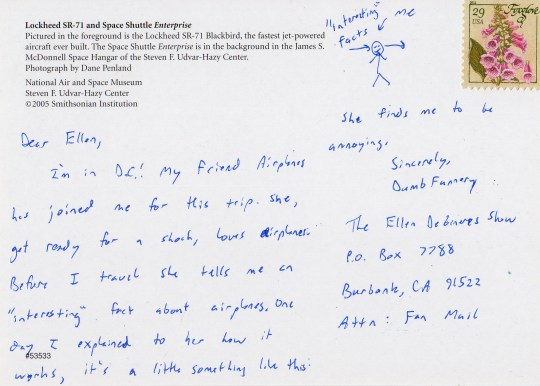 Lockheed SR-71 and Space Shuttle Enterprise
Pictured in the foreground is the Lockheed SR-71 Blackbird, the fastest jet-powered
aircraft ever built. The Space Shuttle Enterprise is in the background in the James S.
McDonnell Space Hangar of the Steven F. Udvar-Hazy Center.
Photograph by Dane Penland
National Air and Space Museum
Steven F. Udvar-Hazy Center
©2005 Smithsonian Institution
Dear Ellen,
I'm in D.C.! My friend Airplanes
has joined me for this trip. She,
get ready for a shock, loves airplanes.
Before I travel she tells me an
"interesting" fact about airplanes. One
day I explained to her how it
works, it's a little something like this:
#53533
"interesting"
facts
me
29
USA
Foxglove
She finds me to be
annoying.
Sincerely,
Dumb Funnery
The Ellen DeGeneres Show
P.O. Box 7788
Burbank, CA 91522
Attn: Fan Mail